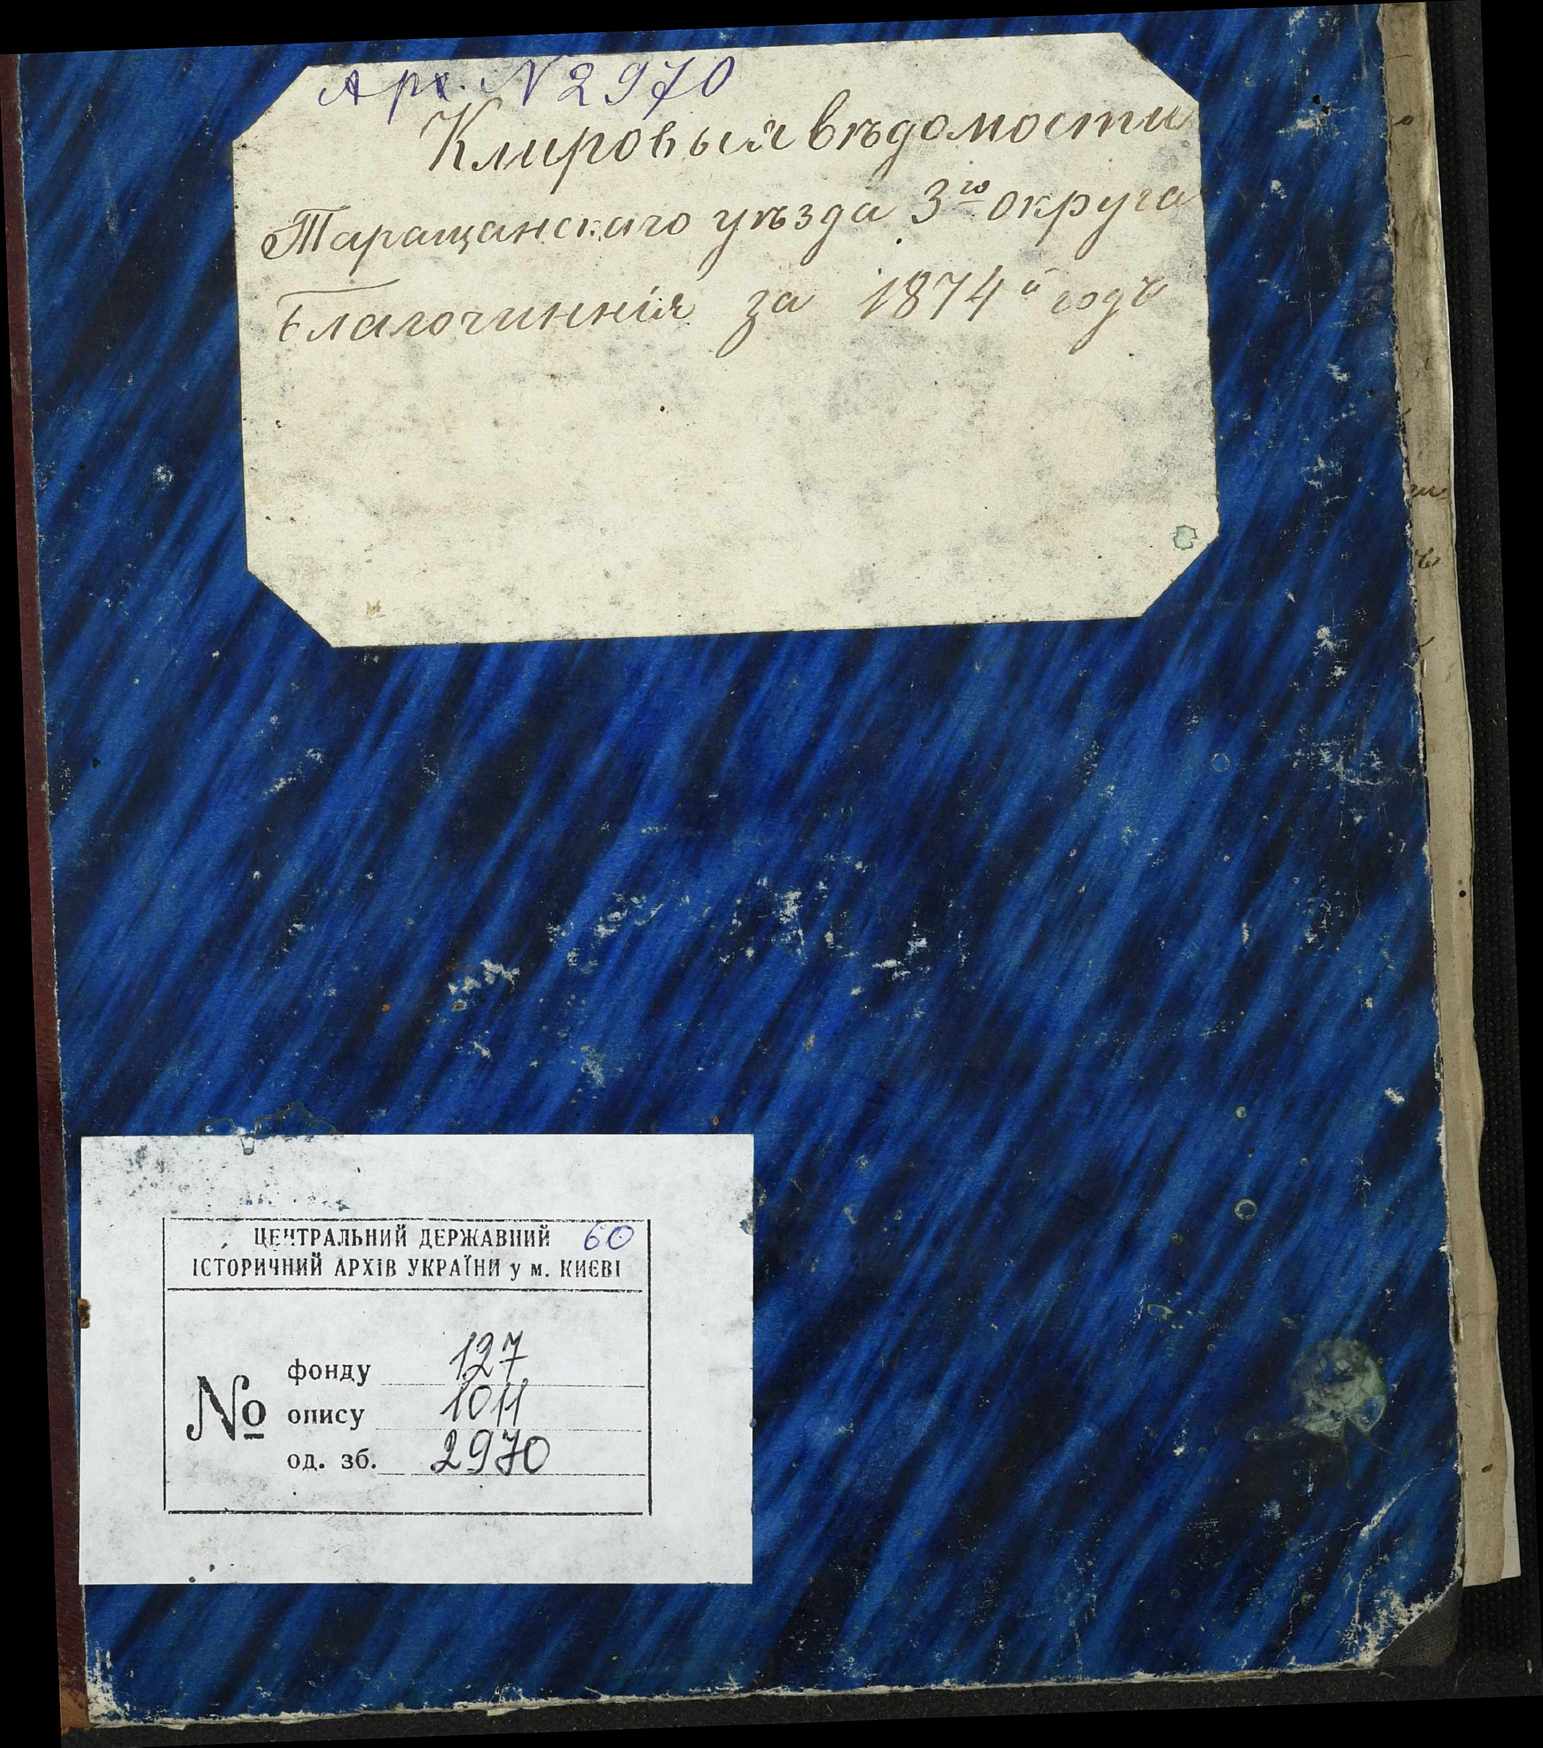 Арх. N 2970
Клировыя вѣдомости
Таращанскаго уѣзда 3го округа
Благочиннія за 1874й годъ
ЦЕНТРАЛЬНИЙ ДЕРЖАВНИЙ 60
ІСТОРИЧНИЙ АРХІВ УКРАЇНИ у м. КИЄВІ
№
фонду 127
опису 1011
од. зб. 2970